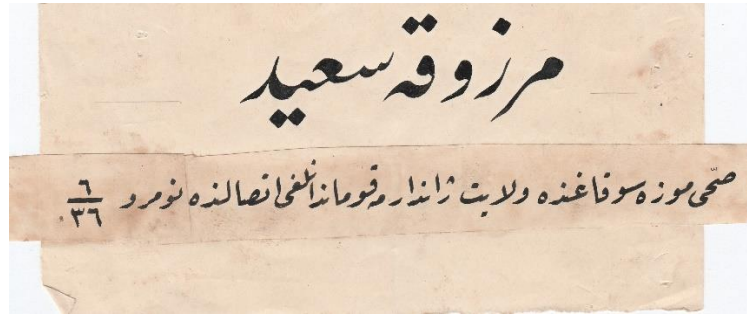 مرزوقه سعيد
صحّی موزه سوقاغنده ولایت ژاندارمه قوماندانلغی اتصالنده نومرو ٦/٣٦